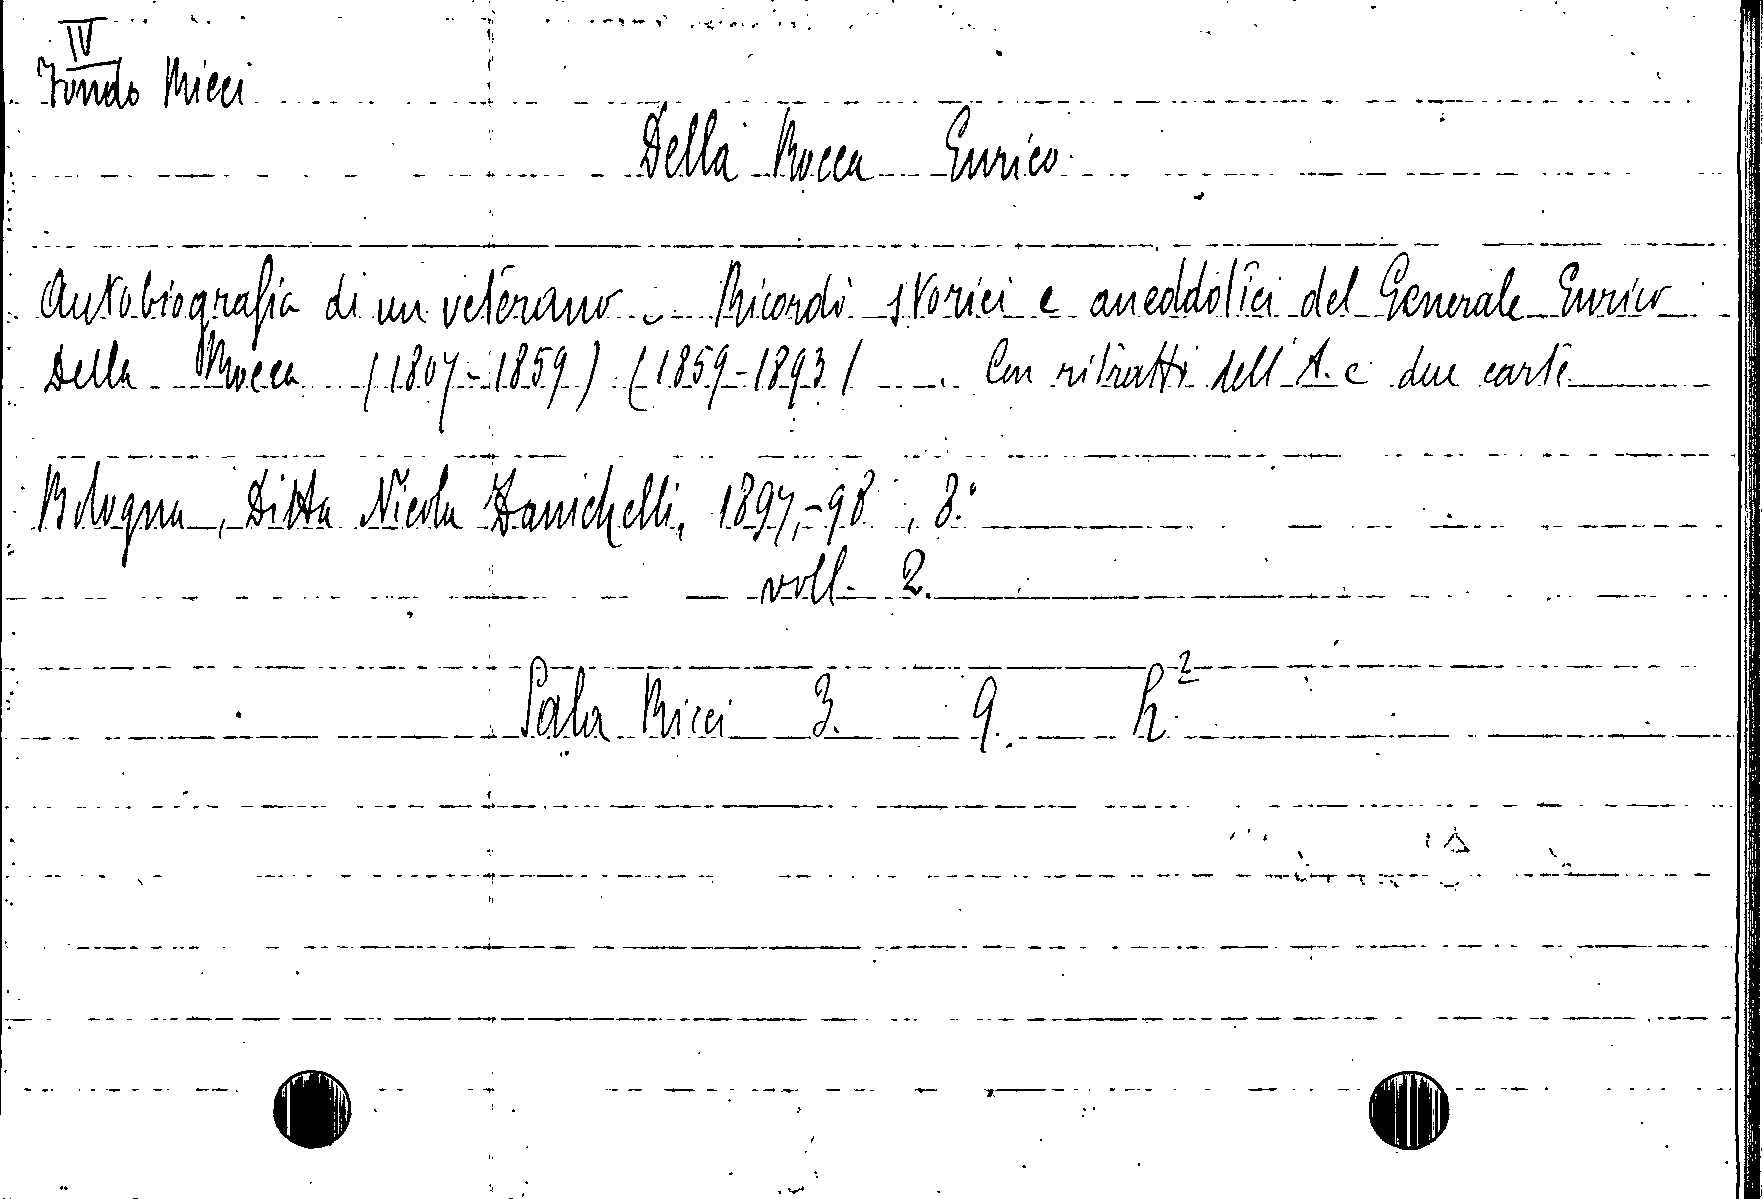 IV
Fondo Ricci
Della Rocca Enrico
Autobiografia di un veterano - Ricordi storici e aneddotici del Generale Enrico
Della Rocca (1807-1859) (1859-1893) . Con ritratti dell'A. e due carte
Bologna, Ditta Nicola Zanichelli, 1897-98, 8.°
voll. 2.
Sala Ricci 3. 9. h²